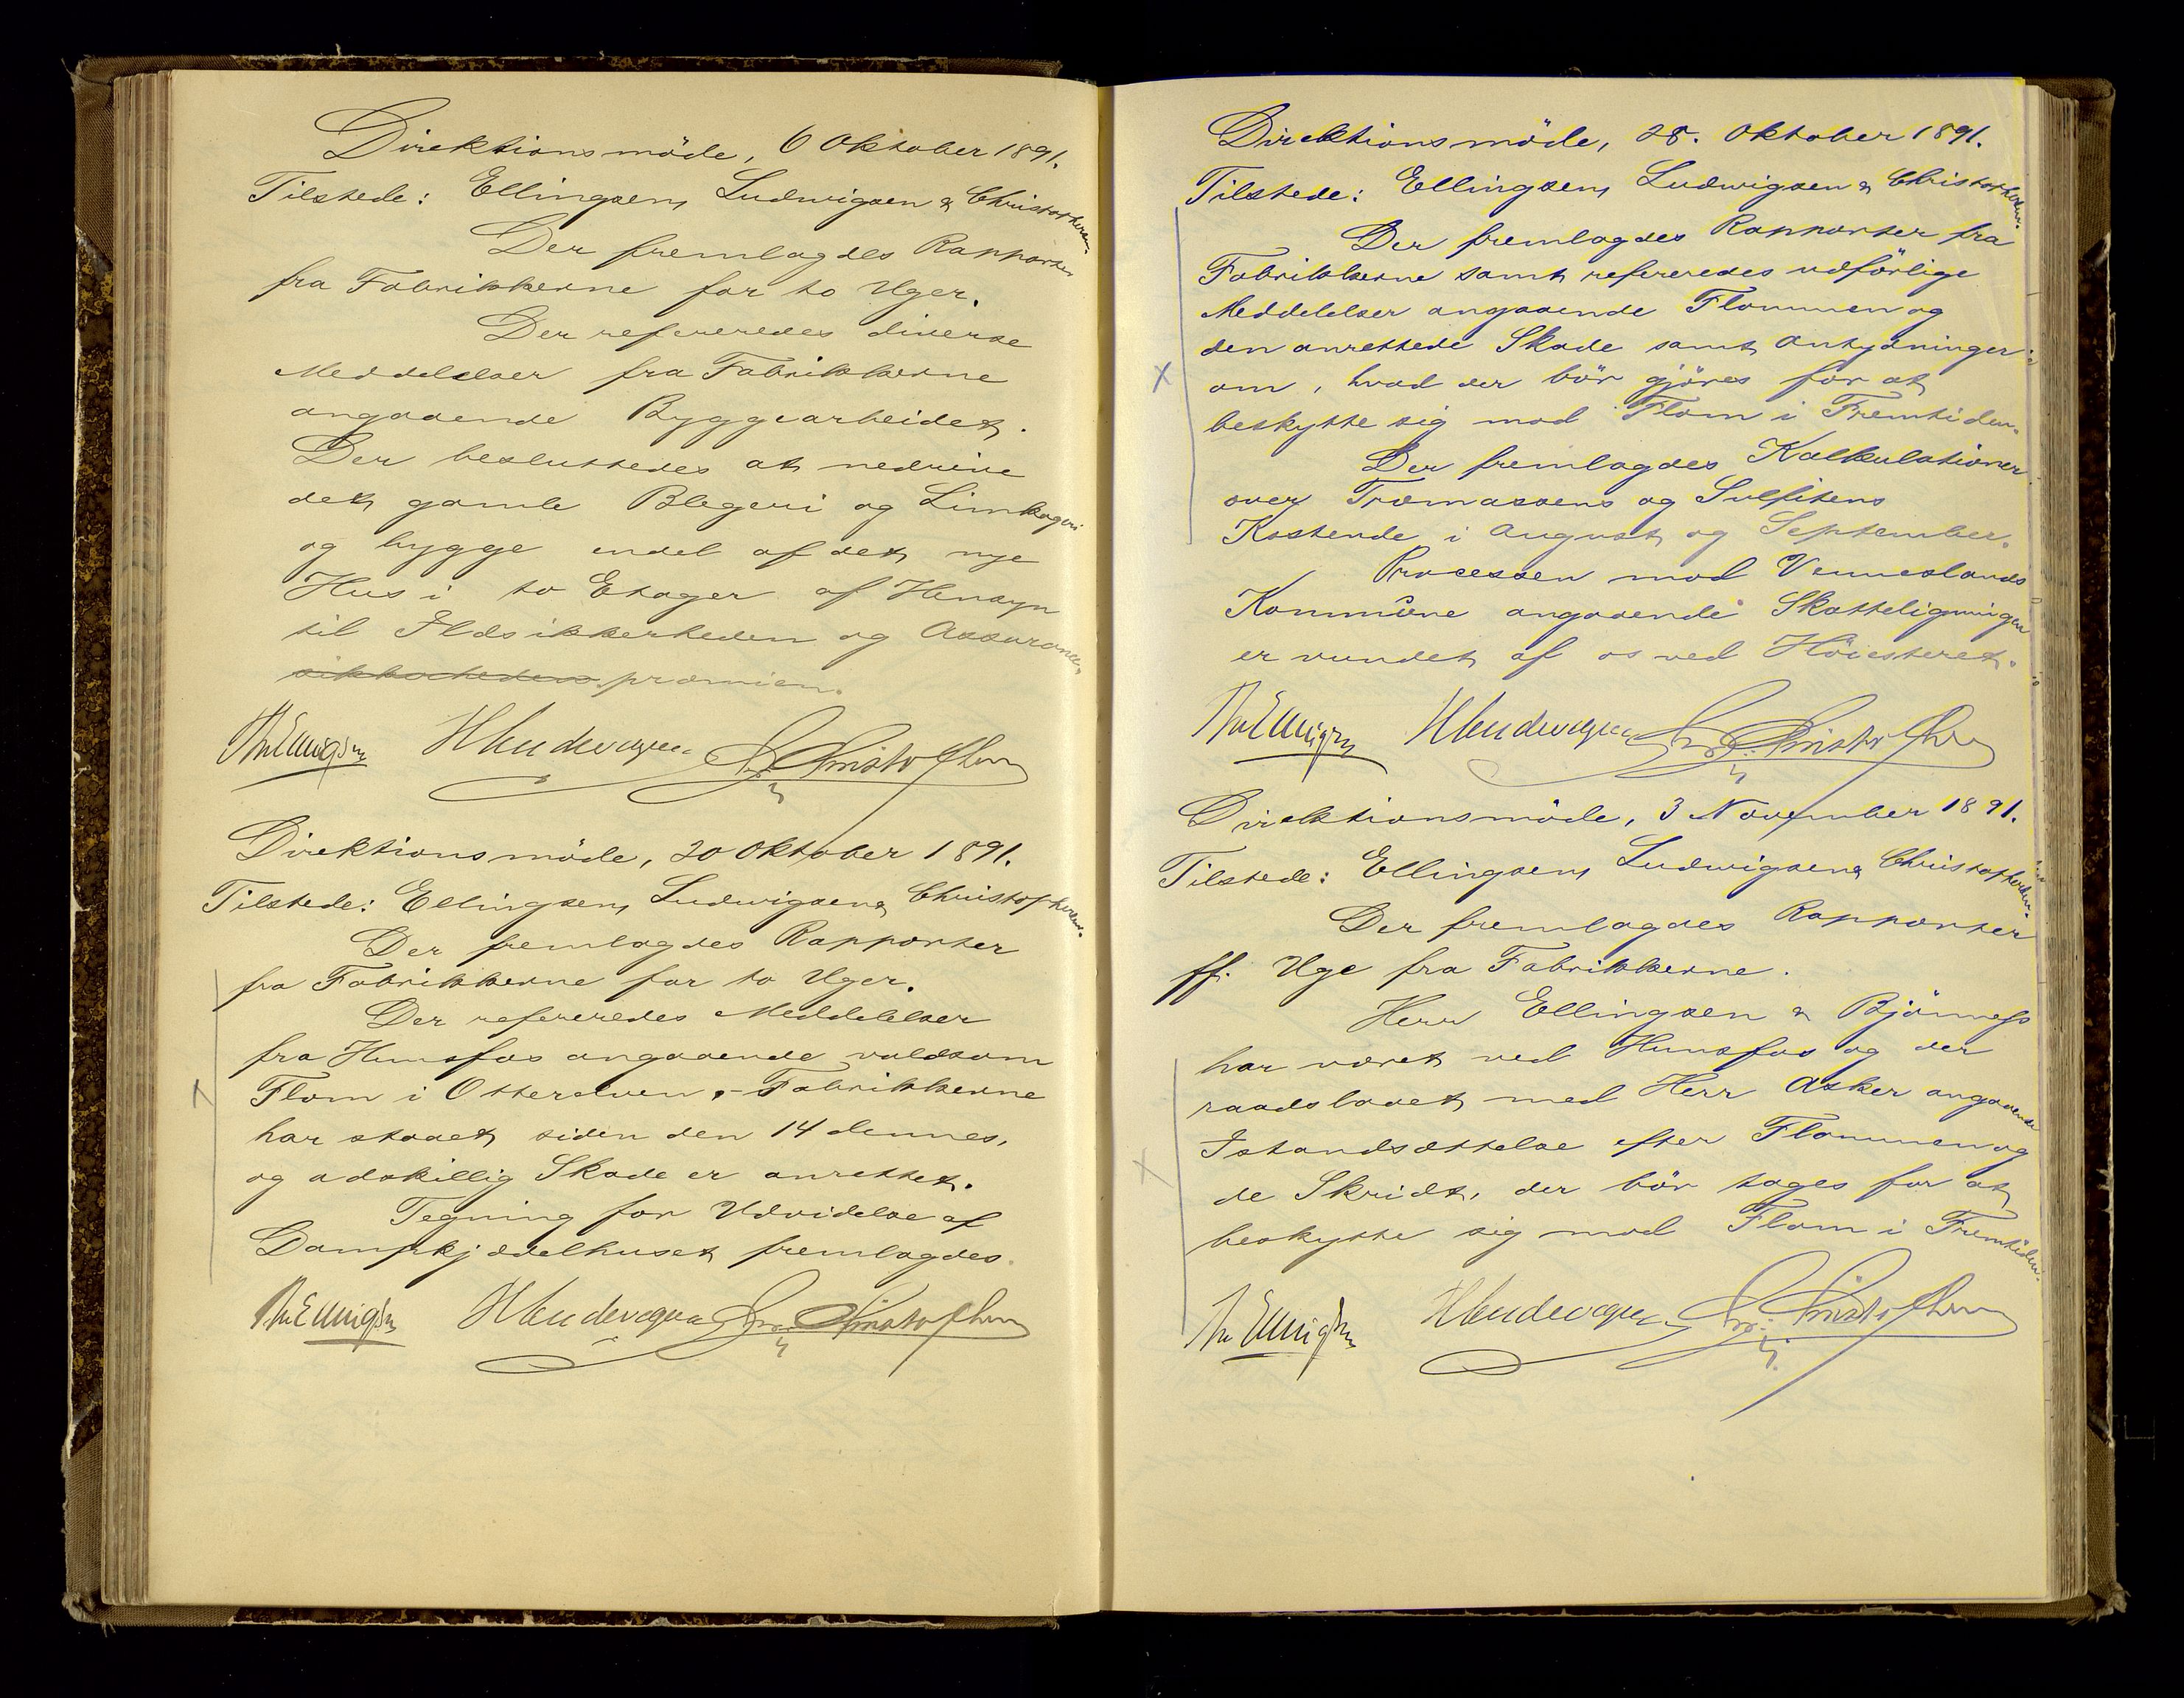 Direktionsmöde, 6 Oktober 1891.
Tilstede: Ellingsen, Ludwigsen & Christophersen.
Der fremlagdes Rapporter
fra Fabrikkerne for to Uger.
Der refereredes diverse
Meddelelser fra Fabrikkerne
angaaende Byggearbeidet.
Der besluttedes at nedrive
det gamle Blegeri og Limkogeri
og bygge endel af det nye
Hus i to Etager af Hensyn
til Ildsikkerheden og Assurance-
sikkerheden præmien.
Direktionsmöde, 20 Oktober 1891.
Tilstede: Ellingsen, Ludwigsen & Christophersen.
Der fremlagdes Rapporter
fra Fabrikkerne for to Uger.
Der refereredes Meddelelser
fra Hunsfos angaaende voldsom
Flom i Otterelven, - Fabrikkerne
har staaet siden den 14 dennes,
og adskillig Skade er anrettet.
Tegning for Udvidelse af
Dampkjedelhuset fremlagdes.
Direktionsmöde, 28. Oktober 1891.
Tilstede: Ellingsen, Ludwigsen & Christophersen.
Der fremlagdes Rapporter fra
Fabrikkerne samt refereredes udförlige
Meddelelser angaaende Flommen og
den anrettede Skade samt Antydninger
X om, hvad der bör gjöres for at
beskytte sig mod Flom i Fremtiden.
Der fremlagdes Kalkulationer
over Træmassens og Sulfitens
Kostende i August og September.
Processen mod Venneslands
Kommune angaaende Skatteligningen
er vundet af os ved Höiesteret.
Direktionsmöde, 3 November 1891.
Tilstede: Ellingsen, Ludwigsen & Christophersen.
Der fremlagdes Rapporter
ff. Uge fra Fabrikkerne.
Herr Ellingsen & Björnness
har været ved Hunsfos og der
raadslaaet med Herr Asker angaaende
X Istandsættelse efter Flommen og
de Skridt, der bör tages for at
beskytte sig mod Flom i Fremtiden.